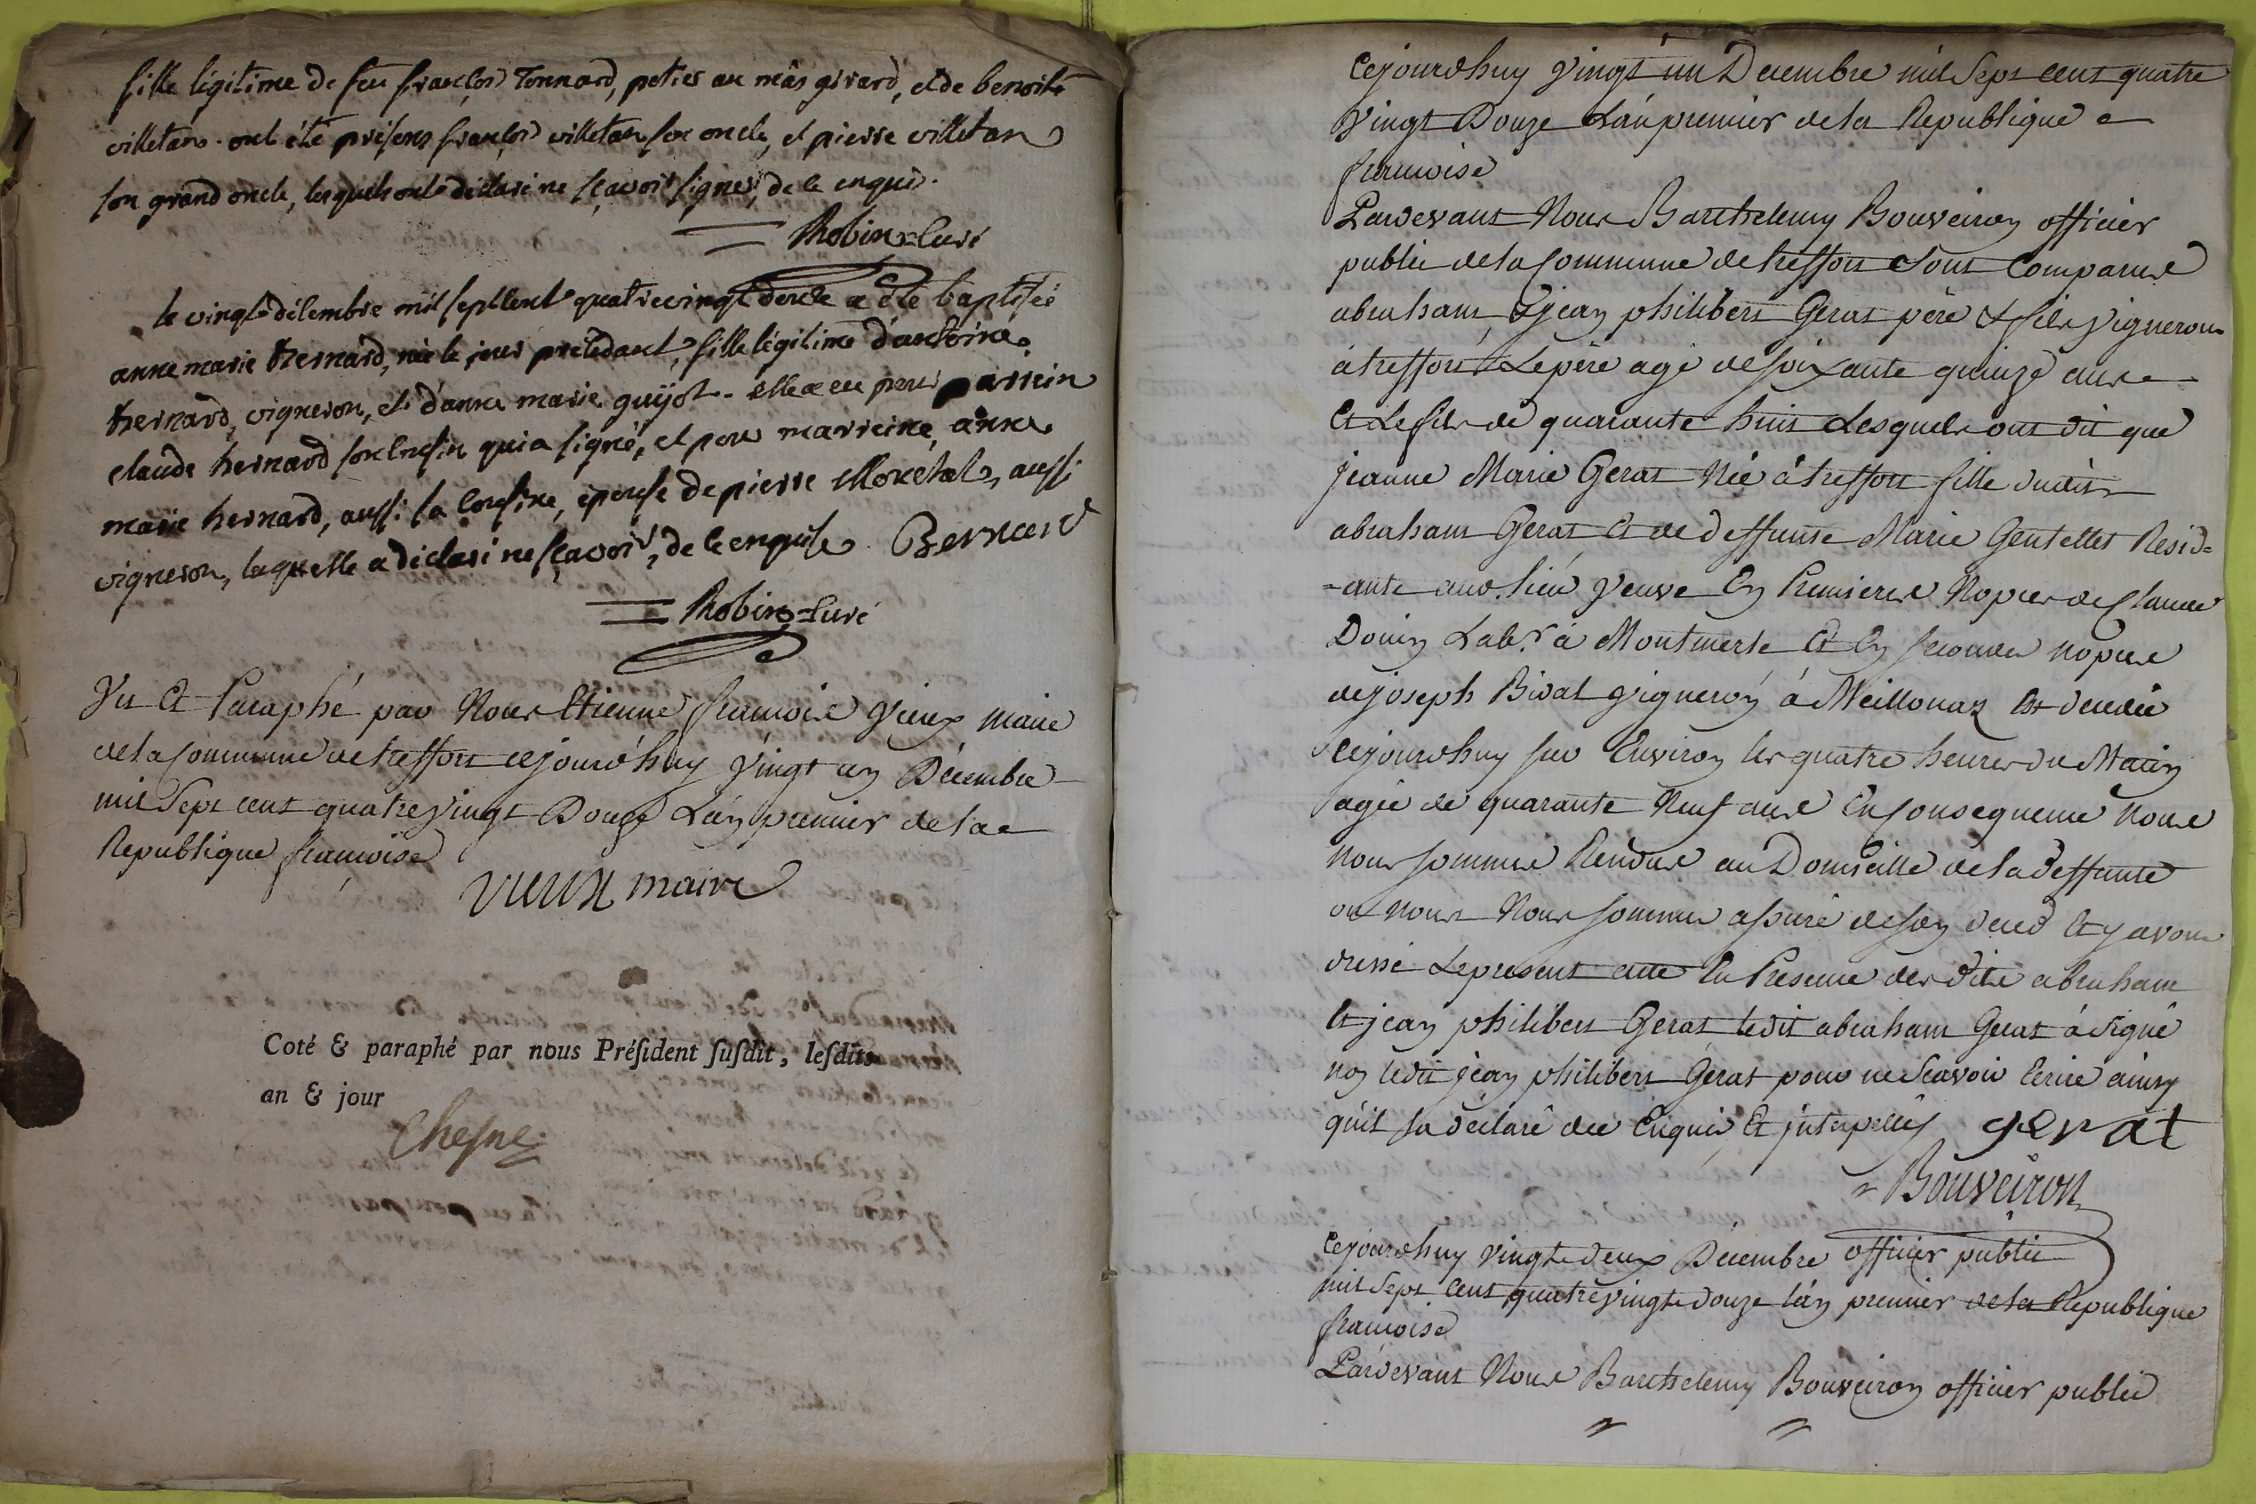 fille légitime de feu françois Tonnard, potier au mâs girard, et de benoite
villetan. ont été présens françois villetan son oncle, et pierre villetan
son grand oncle, lesquels ont déclaré ne sçavoir signer, de ce enquis.
Robin Curé
le vingt décembre mil sept cent quatre vingt douze a été baptisée
anne marie Bernard, née le jour précédant, fille légitime d'antoine
Bernard, vigneron, et d'anne marie guijot. elle a eu pour parrein
claude bernard son cousin qui a signé, et pour marreine, anne
marie bernard, aussi sa cousine, épouse de pierre Moretal, aussi
vigneron, laquelle a déclaré ne sçavoir, de ce enquise. Bernard
Robin Curé
Vu Et Paraphé par Nous Etienne françois Vieux maire
de la Commune de treffort cejourd'huy Vingt un Décembre
mil Sept cent quatre Vingt Douze L'an premier de la
Republique françoise
VIEUX maire
Coté & paraphé par nous Préſident ſuſdit, leſdits
an & jour
Chesne
Cejourdhuy Vingt un Decembre mil Sept cent quatre
Vingt Douze L'an premier de la Republique
françoise
Pardevant Nous Barthelemy Bouveiron officier
public de la Commune de treffort Sont Comparus
abraham Et jean philibert Gerat père & fils Vignerons
à treffort Le père agé de soixante quinze ans
Et Le fils de quarante huit Lesquels ont dit que
jeanne Marie Gerat Née à treffort fille dudit
abraham Gerat Et de deffunte Marie Gentellet Resid=
=ante aud. lieu Veuve En Premieres Nopces de Claude
Douin Lab.r à Montmerle Et En secondes nopces
de joseph Bidat Vigneron à Meillonaz Est decedée
Cejourdhuy sur Environ les quatre heures du Matin
agée de quarante Neuf ans En Consequence Nous
nous sommes Rendus au Domicille de la deffunte
ou nous Nous sommes assuré de son deced Et y avons
dressé Le present acte En Presence des dits abraham
Et jean philibert Gerat ledit abraham Gerat à signé
non ledit jean philibert Gerat pour ne Scavoir Ecrire ainsy
qu'il la déclaré de ce Enquis Et jnterpellés gerat
Bouveiron
officier public
Cejourdhuy vingt deux Décembre
mil Sept Cent quatre vingt douze L'an premier de la Republique
françoise
Pardevant Nous Barthelemy Bouveiron officier public